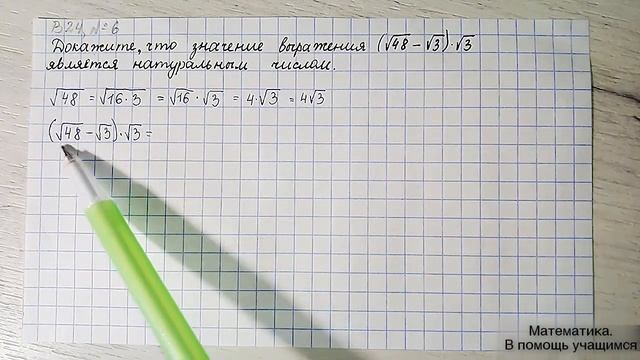 В 24, № 6
Докажите, что значение выражения (√48 − √3)·√3
является натуральным числом.
√48 = √16·3 = √16 · √3 = 4·√3 = 4√3
(√48 − √3)·√3 =
Математика.
В помощь учащимся